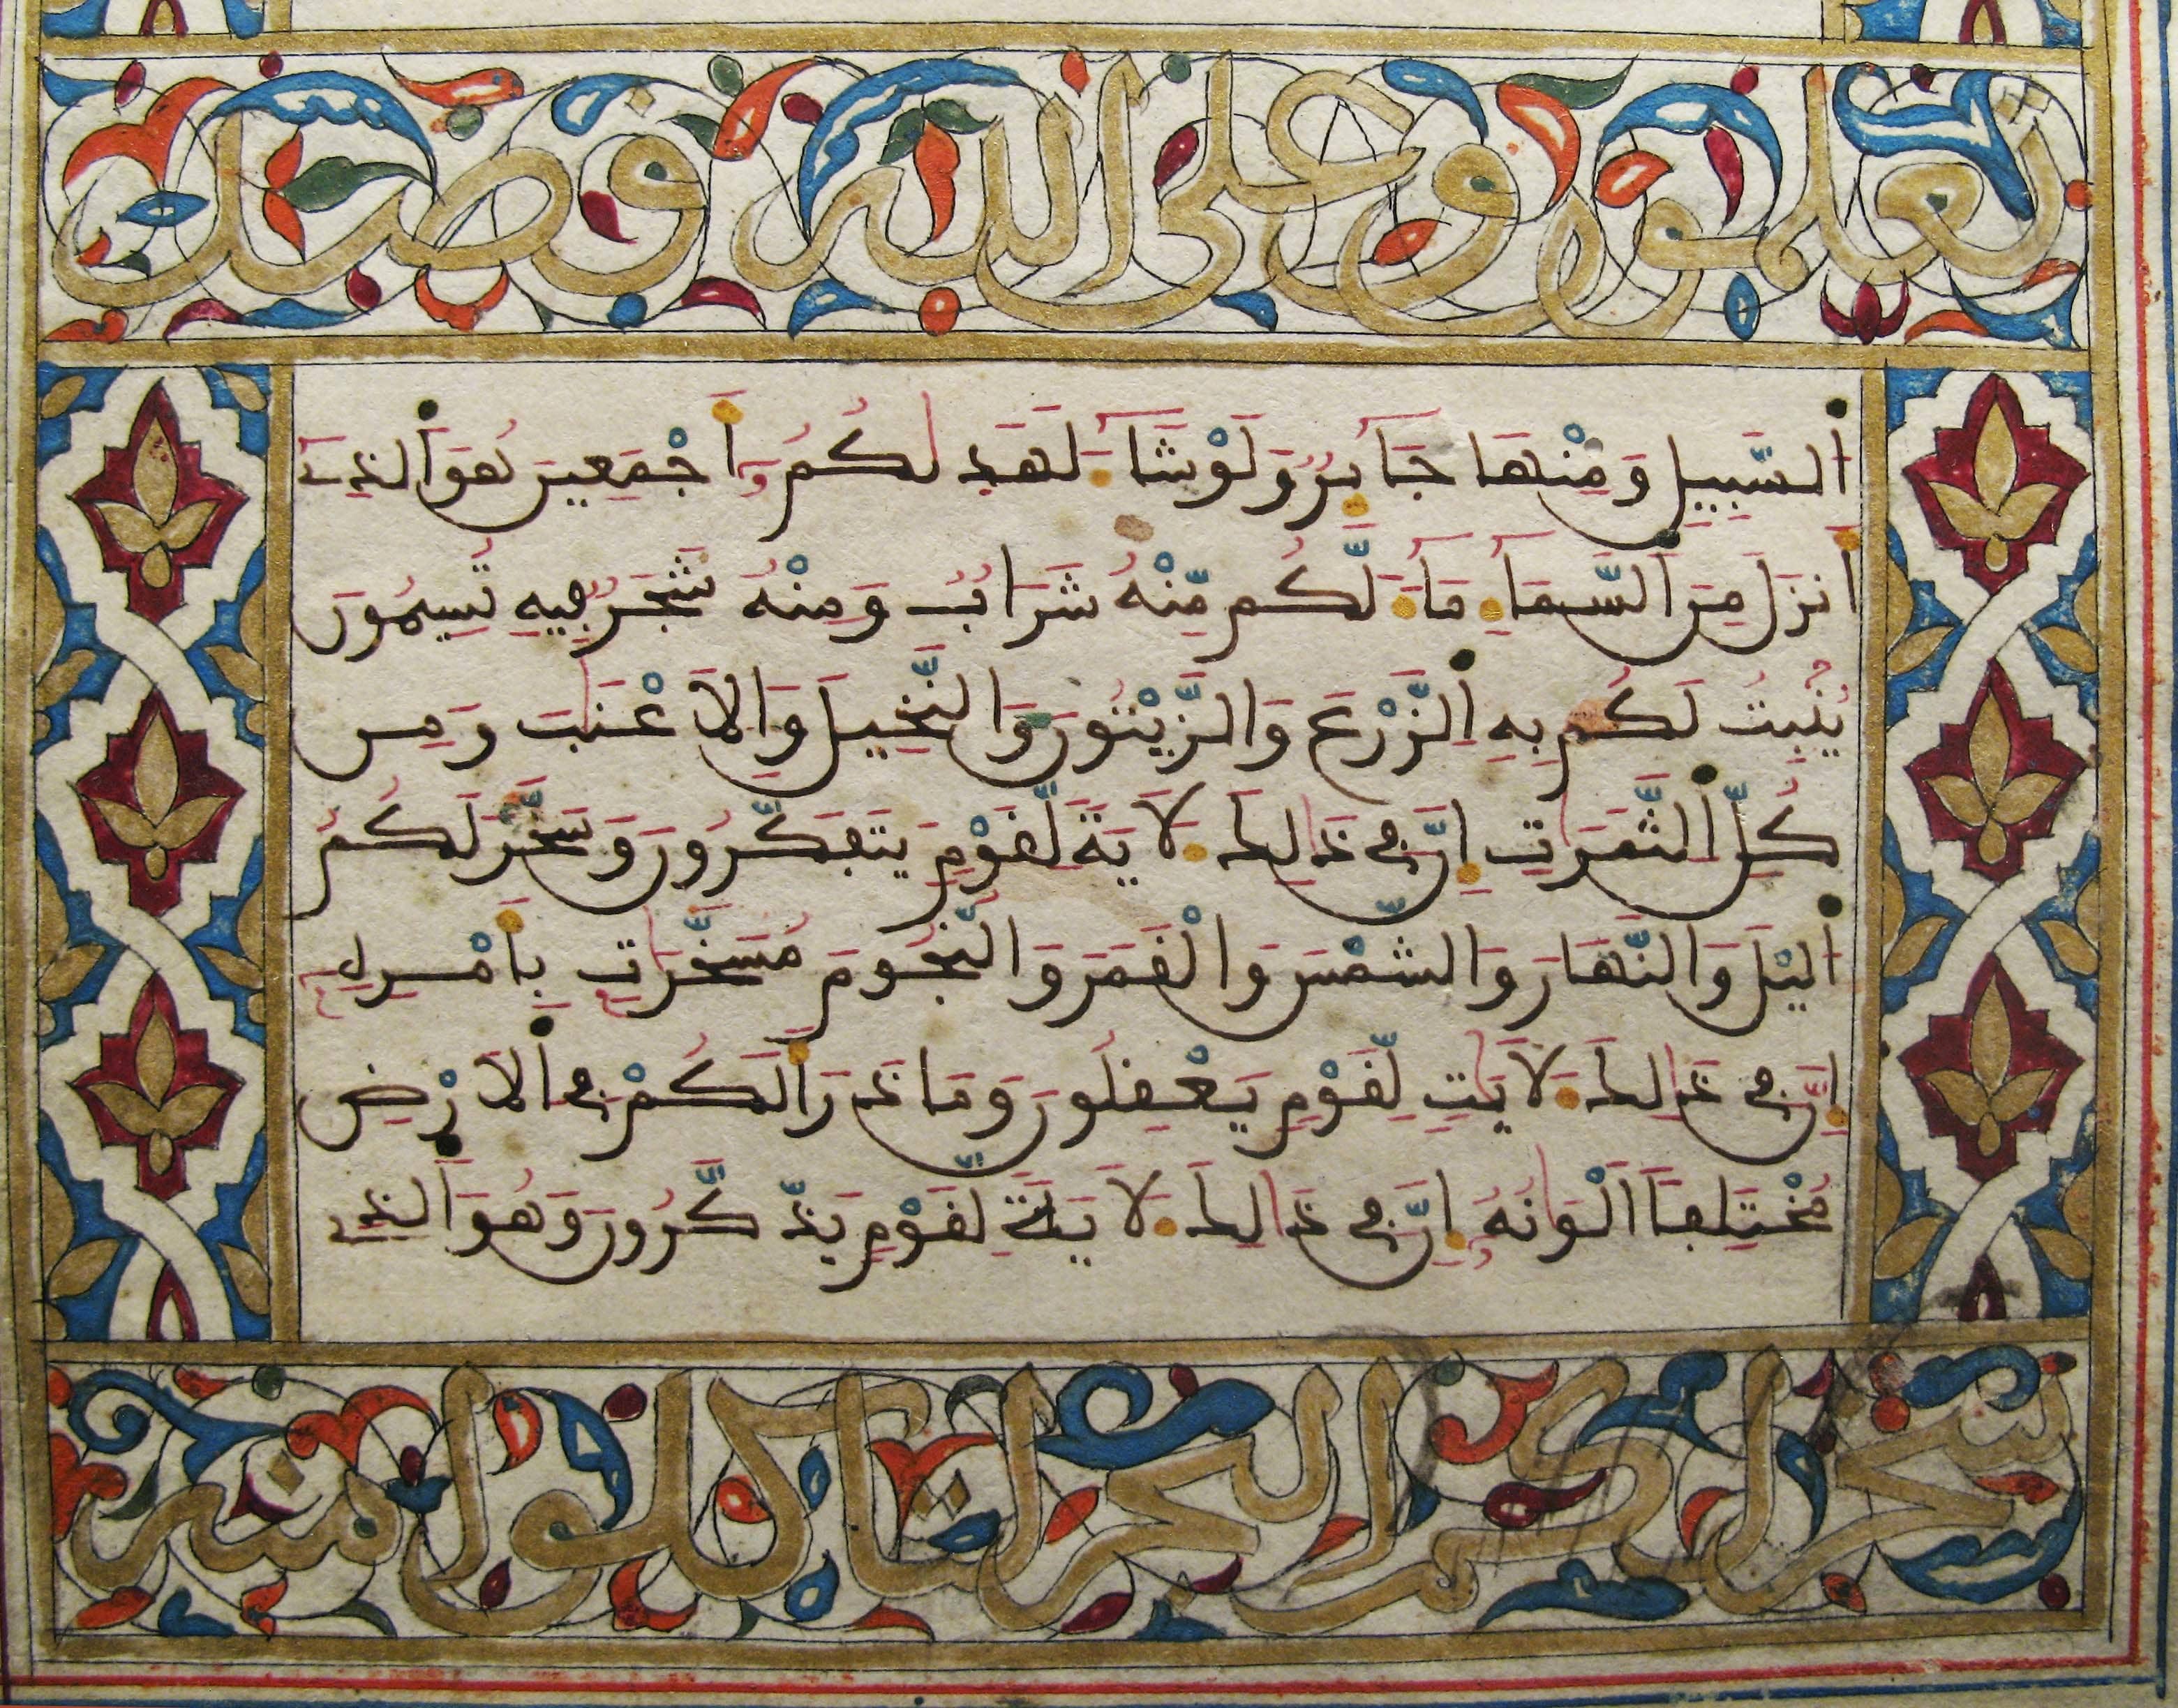 تعلمون وعلى الله قصد
اَ۬لسَّبِيلِ وَمِنْهَا جَآئِرٌ وَلَوْ شَآءَ لَهَد۪ىٰكُمُۥٓ أَجْمَعِينَ هُوَ اَ۬لذِےٓ
أَنزَلَ مِنَ اَ۬لسَّمَآءِ مَآءٗ لَّكُم مِّنْهُ شَرَابٌ وَمِنْهُ شَجَرٌ فِيهِ تُسِيمُونَ
يُنۢبِتُ لَكُم بِهِ اِ۬لزَّرْعَ وَالزَّيْتُونَ وَالنَّخِيلَ وَالَاعْنَٰبَ وَمِن
كُلِّ اِ۬لثَّمَرَٰتِ إِنَّ فِے ذَٰلِكَ لَأٓيَةٗ لِّقَوْمٖ يَتَفَكَّرُونَ وَسَخَّرَ لَكُمُ
اُ۬ليْلَ وَالنَّهَارَ وَالشَّمْسَ وَالْقَمَرَ وَالنُّجُومَ مُسَخَّرَٰتِۢ بِأَمْرِهِۦٓ
إِنَّ فِے ذَٰلِكَ لَأٓيَٰتٖ لِّقَوْمٖ يَعْقِلُونَ وَمَا ذَرَأَ لَكُمْ فِے اِ۬لَارْضِ
مُخْتَلِفاً اَلْوَٰنُهُۥٓ إِنَّ فِے ذَٰلِكَ لَأٓيَةٗ لِّقَوْمٖ يَذَّكَّرُونَ وَهُوَ اَ۬لذِے
سخر لكم البحر لتاكلوا منه